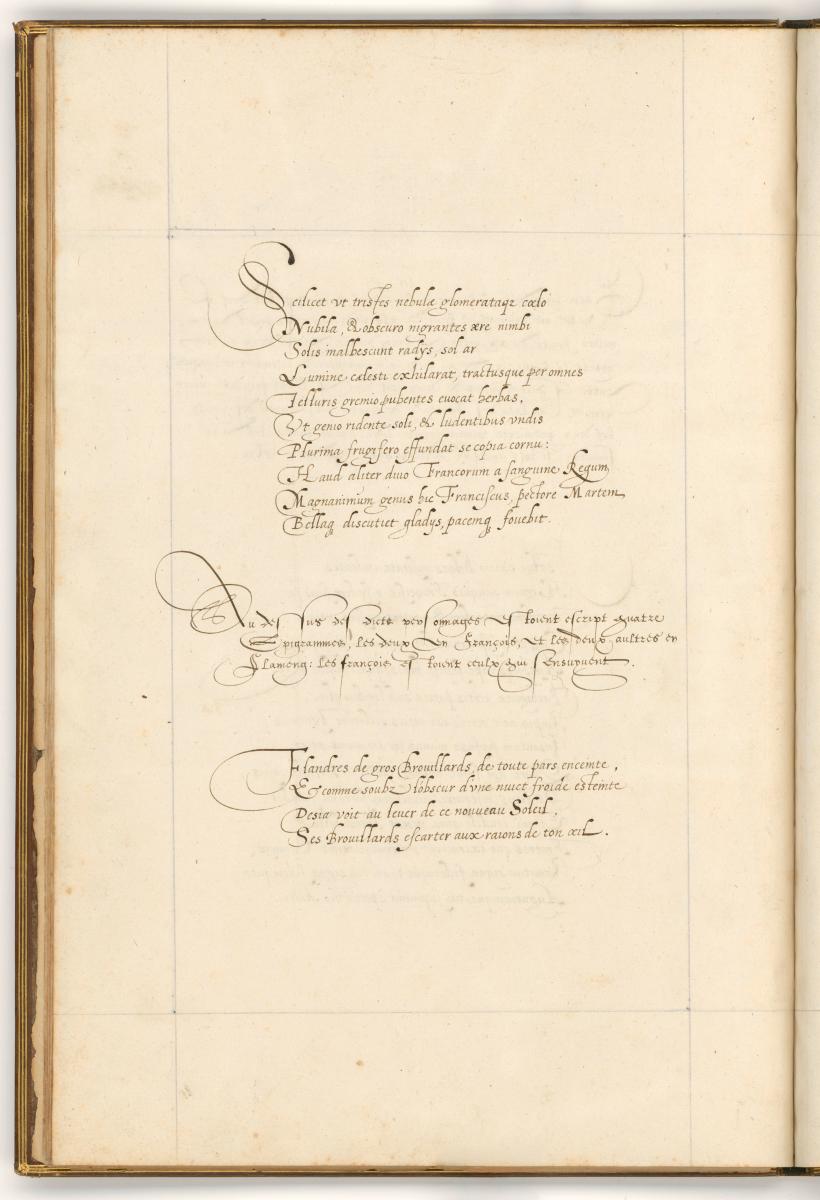 Scilicet vt tristes nebulæ glomerataqz cœlo
Nubila, & obscuro nigrantes ære nimbi
Solis inalbescunt radys, sol ar
Lumine cælesti exhilarat, tractusque per omnes
Telluris gremio pubentes euocat herbas,
Vt genio ridente soli, & ludentibus vndis
Plurima frugifero effundat se copia cornu:
Haud aliter diuo Francorum a sanguine Regum,
Magnanimum genus hic Franciscus, pectore Martem
Bellaq discutiet gladys, pacemq fouebit.
Au dessus desdicts personnages estoient escript quatre
Epigrammes, les deux en François, et les deux aultres en
Flameng: les françois estoient ceulx qui sensuyuent.
Flandres de gros Brouillards, de toute pars enceinte,
Et comme soubz lobscur dvne nuict froide esteinte
Desia voit au leuer de ce nouueau Soleil,
Ses Brouillards escarter aux raions de ton œil.